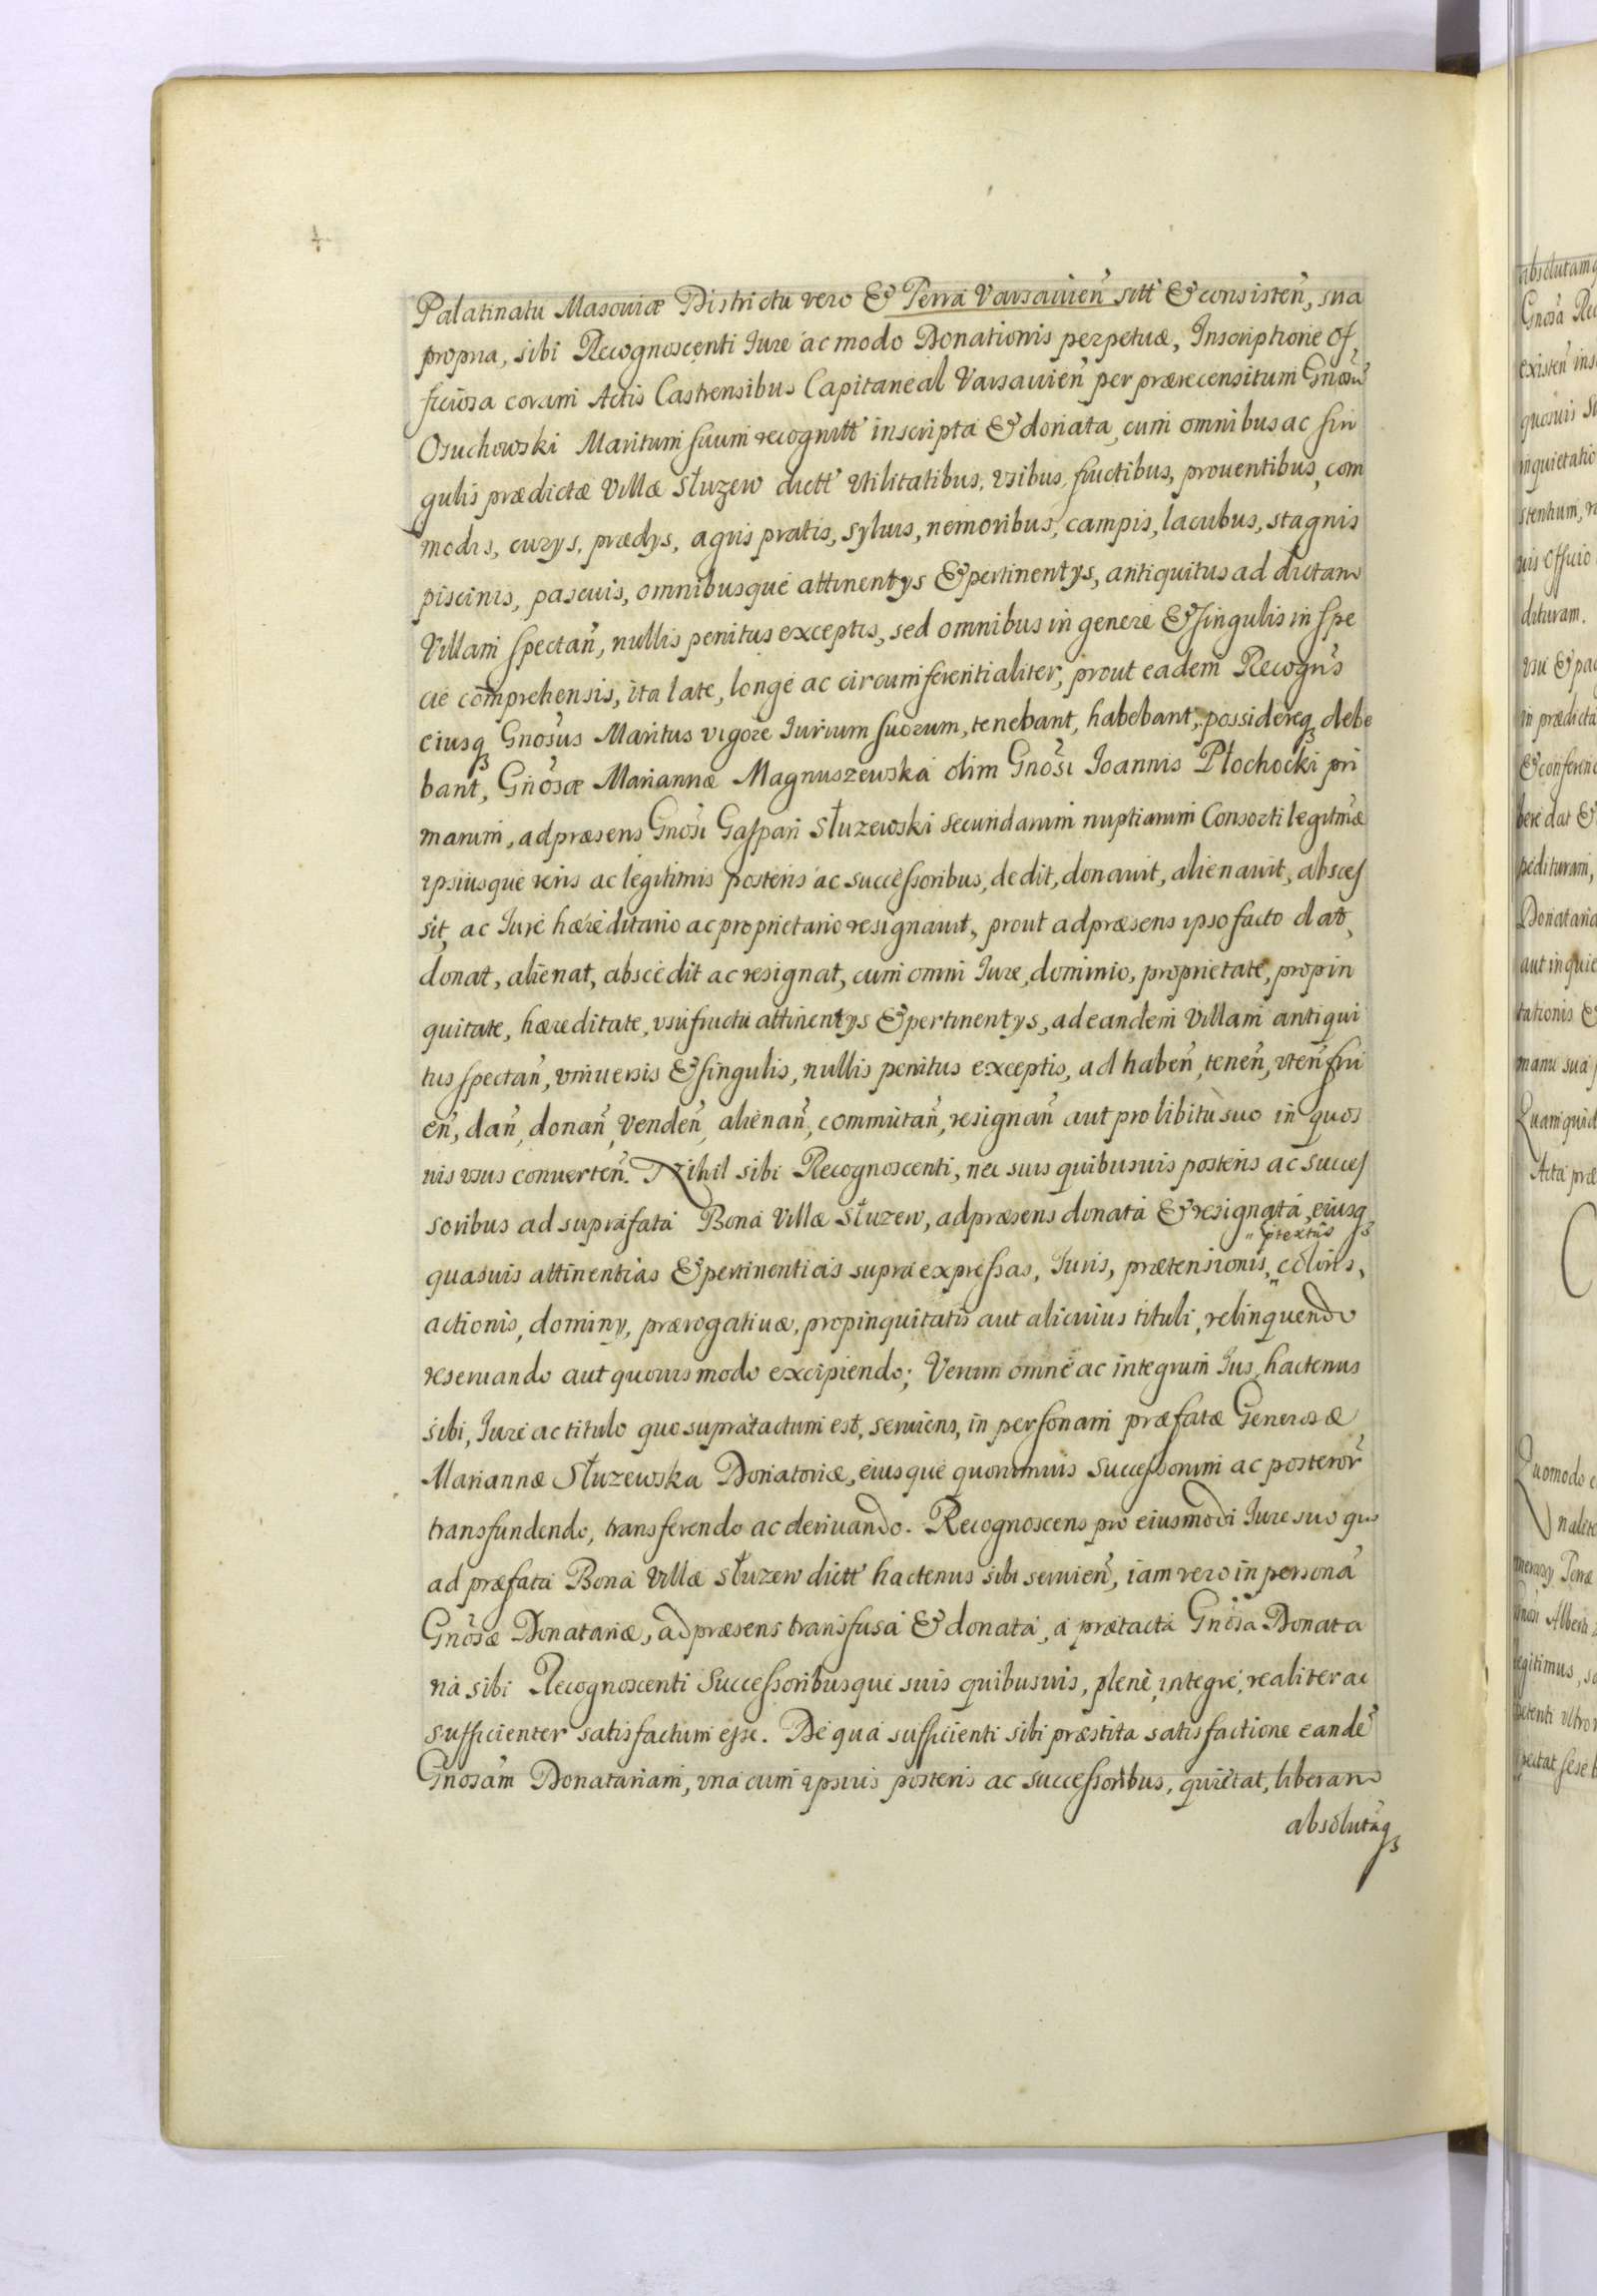 Palatinatu Masouiæ Districtu vero & Terra Varsauień sitt & consisteń, sua
propria, sibi Recognoscenti Iure ac modo Donationis perpetuæ, Inscriptione of
ficiosa coram Actis Castrensibus Capitaneal Varsauień per prærecensitum Gnosu
Osuchowski Maritum suum recognitt inscripta & donata, cum omnibus ac sin
gulis prædictæ Villæ Służew dictt vtilitatibus, vsibus, fructibus, prouentibus, com
modis, curys, prædys, agris pratis, syluis, nemoribus, campis, lacubus, stagnis
piscinis, pascuis, omnibusque attinentys & pertinentys, antiquitus ad dictam
Villam spectań, nullis penitus exceptis, sed omnibus in genere & singulis in spe
cie comprehensis, ita late, longe ac circumferentialiter, prout eadem Recogns
eiusq Gnosus Maritus vigore Iurium suorum, tenebant, habebant, possidereq debe
bant, Gnosæ Mariannæ Magnuszewska olim Gnosi Ioannis Płochocki pri
marum, ad præsens Gnosi Gaspari Służewski secundarum nuptiarum Consorti legitimæ
ipsiusque veris ac legitimis posteris ac successoribus, dedit, donauit, alienauit, absces
sit, ac Iure hæreditario ac proprietario resignauit, prout ad præsens ipso facto dat,
donat, alienat, abscedit ac resignat, cum omni Iure, dominio, proprietate, propin
quitate, hæreditate, vsufructu attinentys & pertinentys, ad eandem Villam antiqui
tus spectań, vniuersis & singulis, nullis penitus exceptis, ad habeń, teneń, vteń fru
eń, dań, donań, vendeń, alienań, commutań, resignań aut pro libitu suo in quos
uis vsus conuerteń. Nihil sibi Recognoscenti, nec suis quibusuis posteris ac succes
soribus ad suprafata Bona Villæ Służew, ad præsens donata & resignata, eiusq
ptextus
quasuis attinentias & pertinentias supra expressas, Iuris, prætensionis, coloris,
actionis, dominy, prærogatiuæ, propinquitatis aut alicuius tituli, relinquendo
reseruando aut quouis modo excipiendo; Verum omne ac integrum Ius, hactenus
sibi, Iure ac titulo quo supratactum est, seruiens, in personam præfatæ Generosæ
Mariannæ Służewska Donatoriæ, eiusque quorumuis successorum ac posteror
transfundendo, transferendo ac deriuando. Recognoscens pro eiusmodi Iure suo quo
ad præfata Bona Villæ Służew dictt hactenus sibi seruień, iam vero in persona
Gnosæ Donatariæ, ad præsens transfusa & donata, a prætacta Gnosa Donata
ria sibi Recognoscenti Successoribusque suis quibusuis, plene, integre, realiter ac
sufficienter satisfactum esse. De qua sufficienti sibi præstita satisfactione eande
Gnosam Donatariam, vna cum ipsius posteris ac successoribus, quietat, liberam
absolutaq
absolutamq
Gnosa Rec
existeń ins
quosuis
inquietatio
uis Officio
dituram.
vsu & pa
in prædicta
& conferen
bere dat &
pedituram,
Donataria
aut inquie
tationis &
manu sua
Quam quid
Acta præ
Quomodo
mensy Terræ
Alberti
legitimus, s
petenti vltro